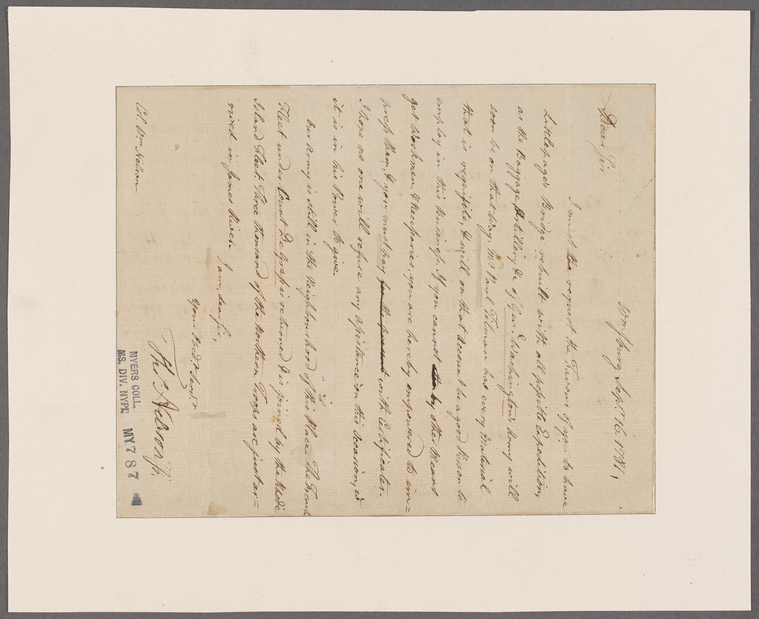 Wmsburg Sept. 16. 1781,
Dear Sir
I must request the Favour of you to have
Littlepage's Bridge rebuilt with all possible Expedition,
as the Baggage Artillery &c of Genl. Washington's Army will
soon be on that Way. Mr. Paul Tilman has every Material
that is requisite, & will on that account be a good Person to
employ in this Business. If you cannot by other Means
get Workmen, & Necessaries, you are hereby empowered to im=
press them, & you must pay with Certificates.
I hope no one will refuse any Assistance in this Occasion, if
it is in his Power to give.
Our Army is still in the Neighbourhood of this Place. The French
Fleet under Count De Grasse is returned & is joined by the Rhode
Island Fleet. Three thousand of the Northern Troops are just ar=
rived in James River.
I am, dear Sir,
Your Obedt Servt
Ths Nelson jr.
Col. Wm Nelson
MYERS COLL.
MS. DIV. NYPL
MY 7 87